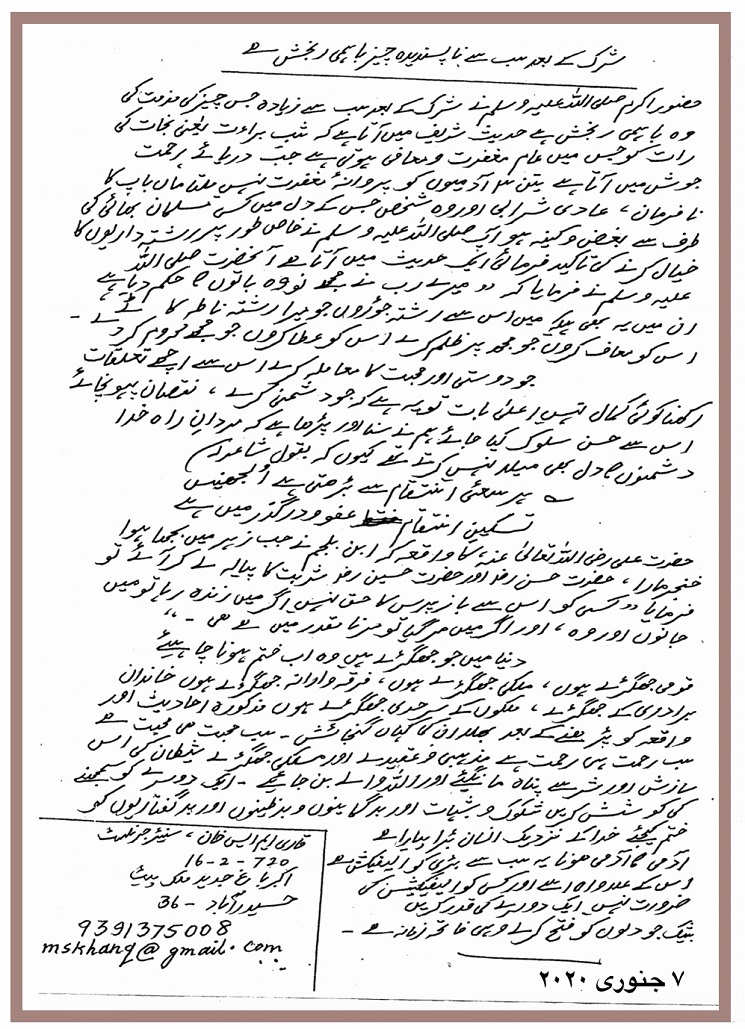 شرک کے بعد سب سے ناپسندیدہ چیز باہمی رنجش ہے
حضور اکرم صلی اللہ علیہ وسلم نے شرک کے بعد سب سے زیادہ جس چیز کی مذمت کی
وہ باہمی رنجش ہے حدیث شریف میں آتا ہے کہ شب براءت یعنی نجات کی
رات کو جس میں عام مغفرت و معافی ہوتی ہے جب دریائے رحمت
جوش میں آتا ہے تین ۳ آدمیوں کو پروانۂ مغفرت نہیں ملتا ماں باپ کا
نافرمان، عادی شرابی اور وہ شخص جس کے دل میں کسی مسلمان بھائی کی
طرف سے بغض و کینہ ہو آپ صلی اللہ علیہ وسلم نے خاص طور پر رشتہ داریوں کا
خیال کرنے کی تاکید فرمائی ایک حدیث میں آتا ہے آنحضرت صلی اللہ
علیہ وسلم نے فرمایا کہ "میرے رب نے مجھے نو ۹ باتوں کا حکم دیا ہے
ان میں یہ بھی ہیکہ میں اس سے رشتہ جوڑوں جو میرا رشتہ ناطہ کاٹے
اس کو معاف کروں جو مجھ پر ظلم کرے اس کو عطا کروں جو مجھے محروم کر دے۔
جو دوستی اور محبت کا معاملہ کرے اس سے اچھے تعلقات
رکھنا کوئی کمال نہیں اعلیٰ بات تو یہ ہے کہ جو دشمنی کرے، نقصان پہونچائے
اس سے حسن سلوک کیا جائے ہم نے سنا اور پڑھا ہے کہ مردانِ راہ خدا
دشمنوں کا دل بھی میلا نہیں کرتے تھے کیوں کہ بقول شاعر
ہر سعئی انتقام سے بڑھتی ہے اُلجھنیں
تسکین انتقام عفو و درگذر میں ہے
حضرت علی رضی اللہ تعالیٰ عنہ، کا واقعہ کہ ابن ملجم نے جب زہر میں بجھا ہوا
خنجر مارا، حضرت حسن رضؓ اور حضرت حسین رضؓ شربت کا پیالہ لے کر آئے تو
فرمایا "کسی کو اس سے بازپرس کا حق نہیں اگر میں زندہ رہا تو میں
جانوں اور وہ، اور اگر میں مر گیا تو مرنا مقدر میں ہے ہی۔"
دنیا میں جو جھگڑے ہیں وہ اب ختم ہونا چاہیئے
قومی جھگڑے ہوں، ملکی جھگڑے ہوں، فرقہ وارانہ جھگڑے ہوں خاندان
برادری کے جھگڑے، ملکوں کے سرحدی جھگڑے ہوں مذکورہ احادیث اور
واقعہ کو پڑھنے کے بعد بھلا ان کی کہاں گنجائش۔ سب محبت ہی محبت ہے
سب رحمت ہی رحمت ہے مذہبی و عقیدے اور مسلکی جھگڑے شیطان کی اس
سازش اور شر سے پناہ مانگیئے اور اللہ والے بن جائیے۔ ایک دوسرے کو سمجھنے
کی کوشش کریں شکوک و شبہات اور بدگمانیوں و بدظنیوں اور بدگفتاریوں کو
ختم کیجئے خدا کے نزدیک انسان بڑا پیارا ہے
آدمی کا آدمی ہونا یہ سب سے بڑی کوالیفیکیشن ہے
اُس کے علاوہ اسے اور کسی کوالیفیکیشن کی
ضرورت نہیں ایک دوسرے کی قدر کریں
بیشک جو دلوں کو فتح کرلے وہی فاتحِ زمانہ ہے۔
قاری ایم ایس خان، سنیئر جرنلسٹ
16-2-720
اکبر باغ جدید ملک پیٹ
حیدرآباد - 36
9391375008
mskhanq@gmail.com
۷ جنوری ۲۰۲۰